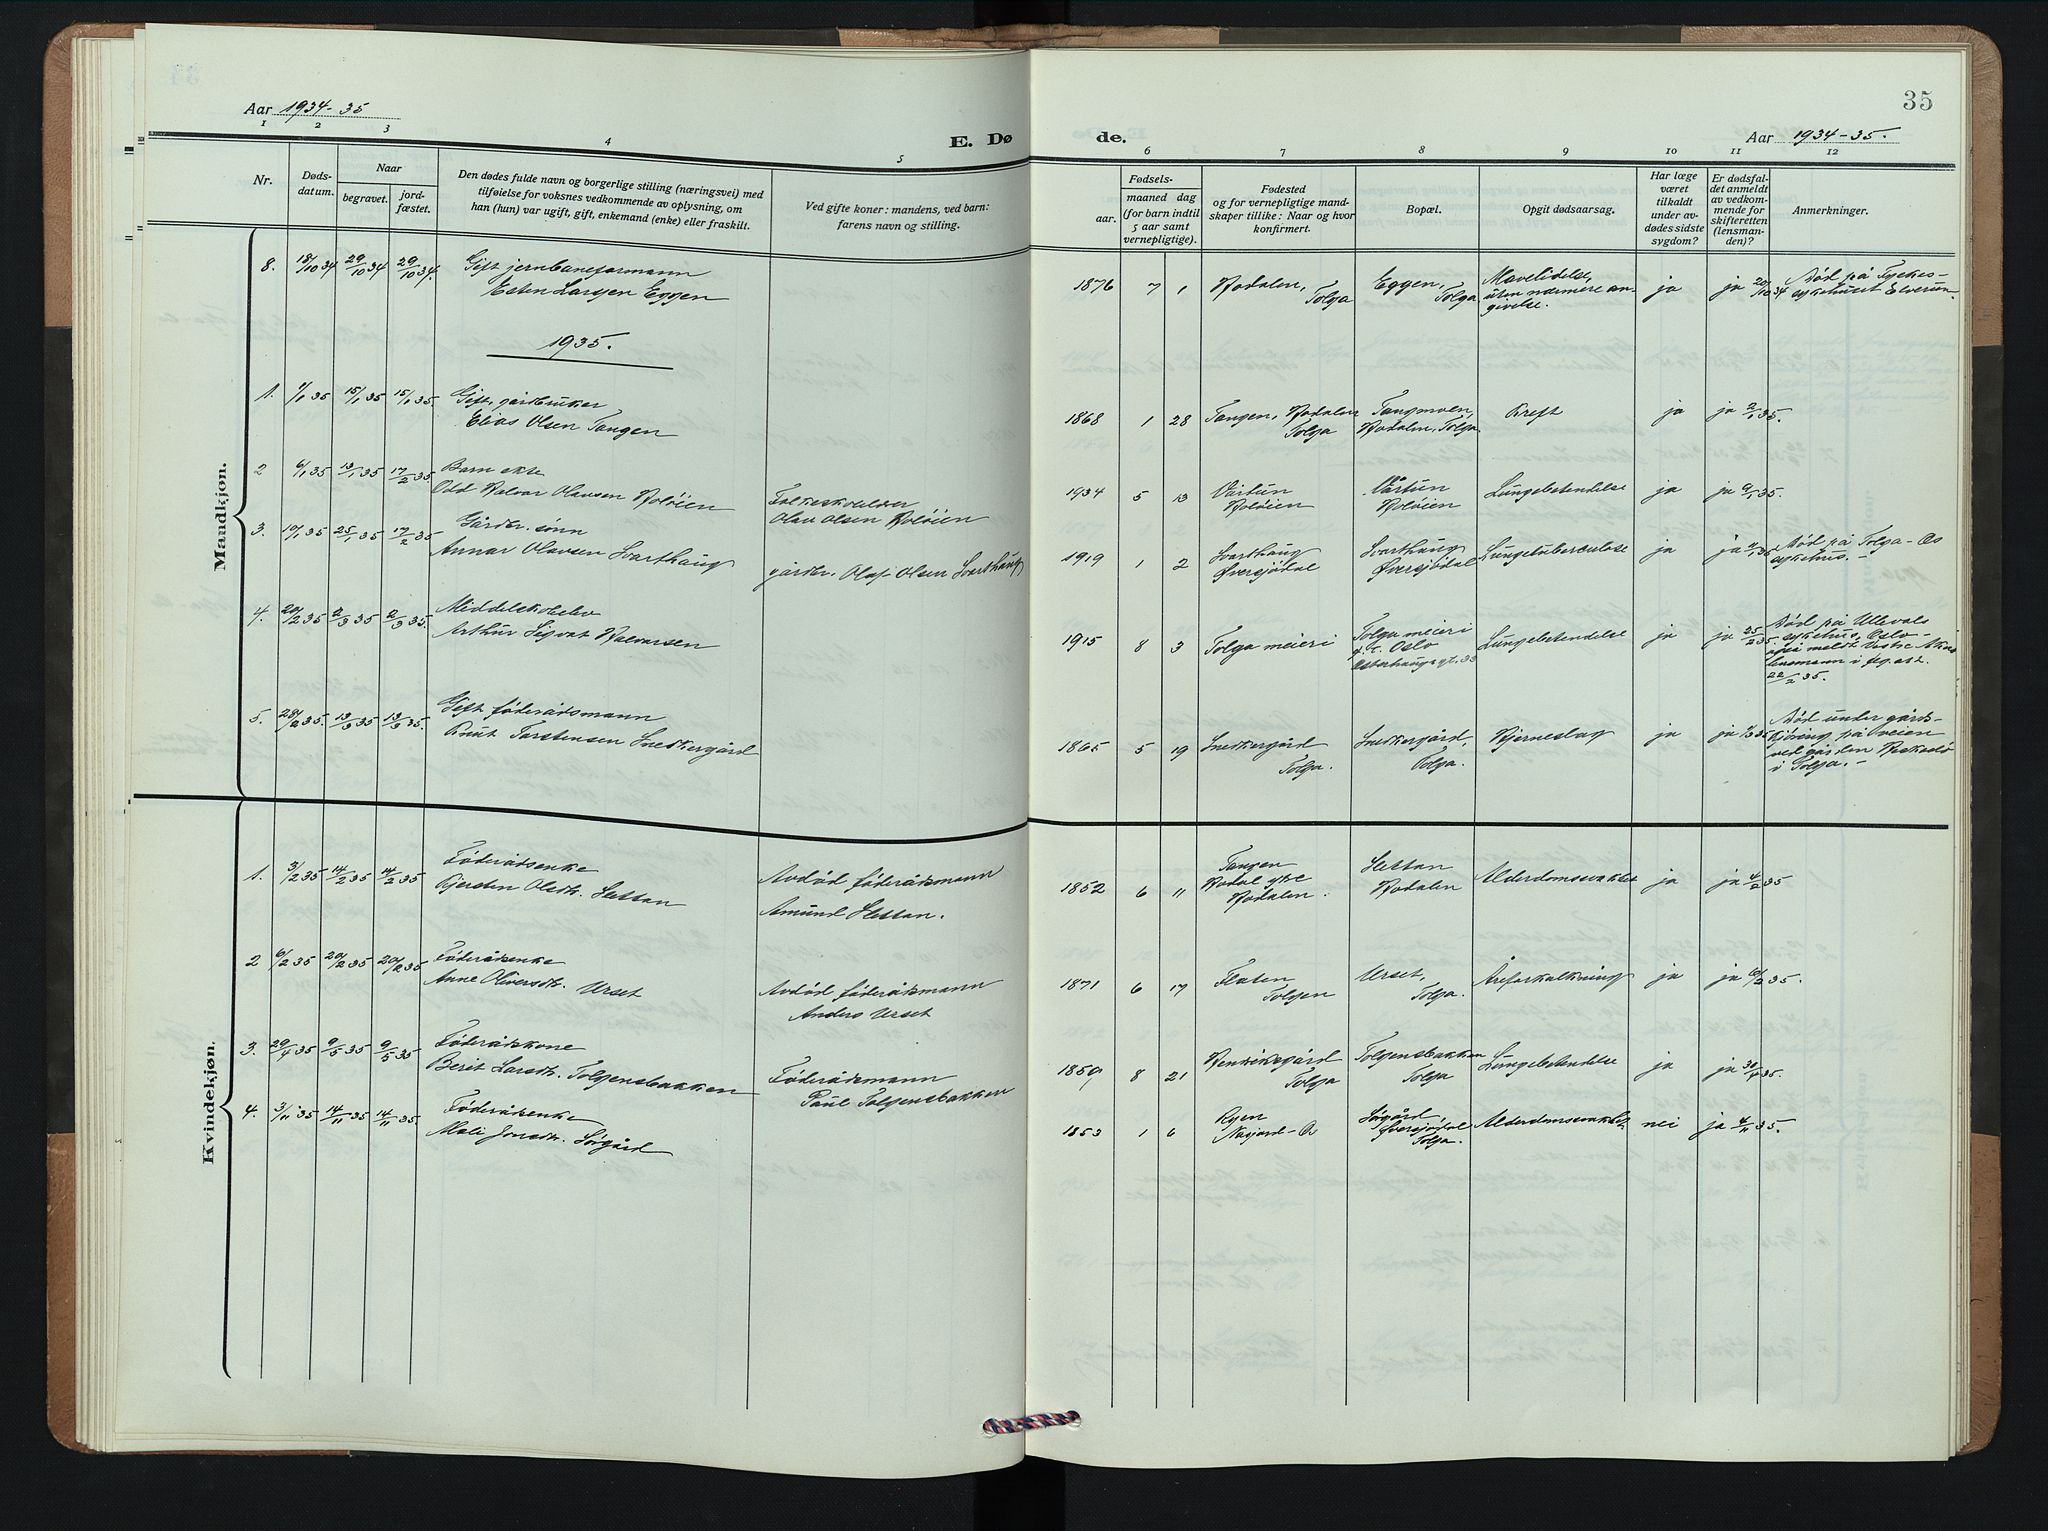 35
Aar 1934-35
E. Dø
de.
Aar 1934-35.
1 2 3 4 5 6 7 8 9 10 11 12
Nr.
Døds-
datum.
Naar
begravet.
jord-
fæstet.
Den dødes fulde navn og borgerlige stilling (næringsvei) med
tilføielse for voksnes vedkommende av oplysning, om
han (hun) var ugift, gift, enkemand (enke) eller fraskilt.
Ved gifte koner: mandens, ved barn:
farens navn og stilling.
Fødsels-
aar.
maaned dag
(for barn indtil
5 aar samt
vernepligtige).
Fødested
og for vernepligtige mand-
skaper tillike: Naar og hvor
konfirmert.
Bopæl.
Opgit dødsaarsag.
Har læge
været
tilkaldt
under av-
dødes sidste
sygdom?
Er dødsfal-
det anmeldt
av vedkom-
mende for
skifteretten
(lensman-
den)?
Anmerkninger.
Mandkjøn.
8. 18/10 34 29/10 34 29/10 34. Gift jernbaneformann
Esten Larsen Eggen
1876 7 1 Hodalen,
Tolga
Eggen,
Tolga
Mavelidelse,
uten nærmere an-
givelse.
ja ja 20/10 34
Død på
sykehuset Elverum.
1935.
1. 1/1 35 15/1 35 15/1 35. Gift, gårdbruker
Elias Olsen Tangen
1868 1 28 Tangen, Hodalen
Tolga
Tangmoen,
Hodalen, Tolga.
Kreft ja ja 2/1 35.
2 6/1 35 13/1 35 17/2 35 Barn ekte
Odd Halvar Olavsen Holøien
Olav Olsen Holøien
1934 5 13 Vårtun
Holøien
Vårtun
Holøien
Lungebetendelse ja ja 9/1 35.
3. 10/1 35 25/1 35 17/2 35 Gårdbr. sønn
Annar Olavsen Svarthaug
gårdbr. Olaf Olsen Svarthaug
1919 1 2 Svarthaug
Øversjødal
Svarthaug
Øversjödal
Lungetuberculose ja ja 11/1 35
Død på Tolga-Os
sykehus. -
4. 20/2 35 2/3 35 2/3 35. Middelskoleelev
Arthur Sigvat Halvorsen
1915 8 3 Tolga meieri
Tolga meieri
p.t. Oslo
Osterhausgt. 33
Lungebetendelse ja ja 25/2 35.
Død på Ullevål
sykehus, Oslo -
også meldt Vestre Aker
lensmann i
22/2 35.
5. 28/2 35. 13/3 35 13/3 35. Gift føderådsmann
Knut Torstensen Snedkergård
1865 5 19 Snedkergård
Tolga.
Snedkergård,
Tolga.
Hjerneslag ja ja 1/3 35
Död under gårds-
kjöring på veien
ved gården
i Tolga. -
Kvindekjøn.
1. 3/2 35 14/2 35 14/2 35 Føderådsenke
Kjersten Olsdtr. Slettan
Avdød føderådsmann
Amund Slettan.
1852 6 11 Tangen
Hodal
Hodalen.
Slettan
Hodalen
Alderdomssvakhet ja ja 4/2 35
2 6/2 35 20/2 35 20/2 35 Føderådsenke
Anne Oliversdtr. Urset
Avdød føderådsmann
Anders Urset
1871 6 17 Floten
Tolgen
Urset,
Tolga.
Åreforkalkning ja ja 10/2 35.
3. 29/4 35 9/5 35 9/5 35 Føderådskone
Berit Larsdtr. Tolgensbakken
Føderådsmann
Paul Tolgensbakken
1859 8 21 Henriksgård
Tolga
Tolgensbakken
Tolga
Lungebetendelse ja ja 30/4 35.
4. 3/11 35 14/11 35 14/11 35. Føderådsenke
Mali Jonsdtr. Sørgård
1853 1 6 Ryen
Narjord-Os
Sørgård
Øversjødal
Tolga.
Alderdomssvakhet nei ja 4/11 35.